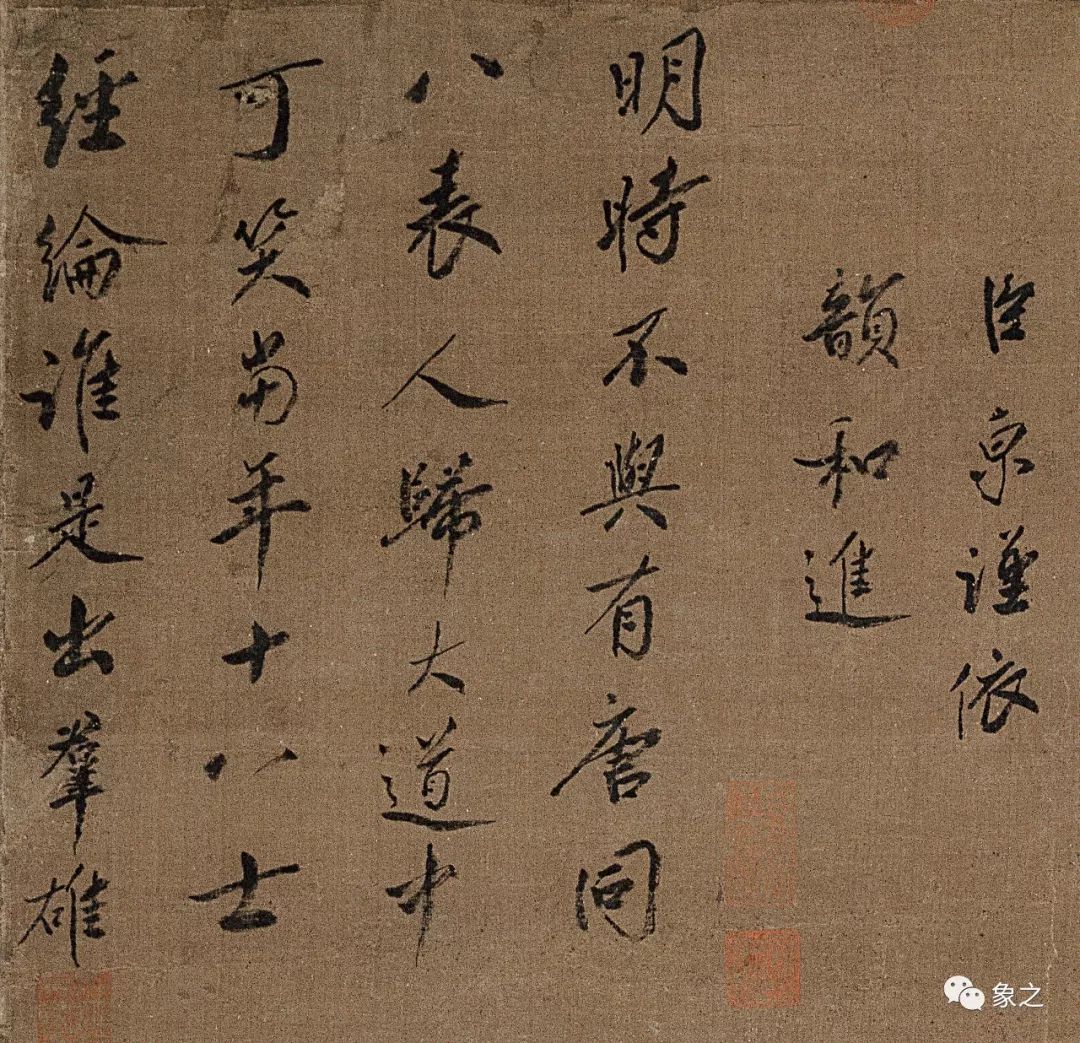 臣京謹依
韻和進
明時不與有唐同
八表人歸大道中
可笑當年十八士
經綸誰是出羣雄
象之